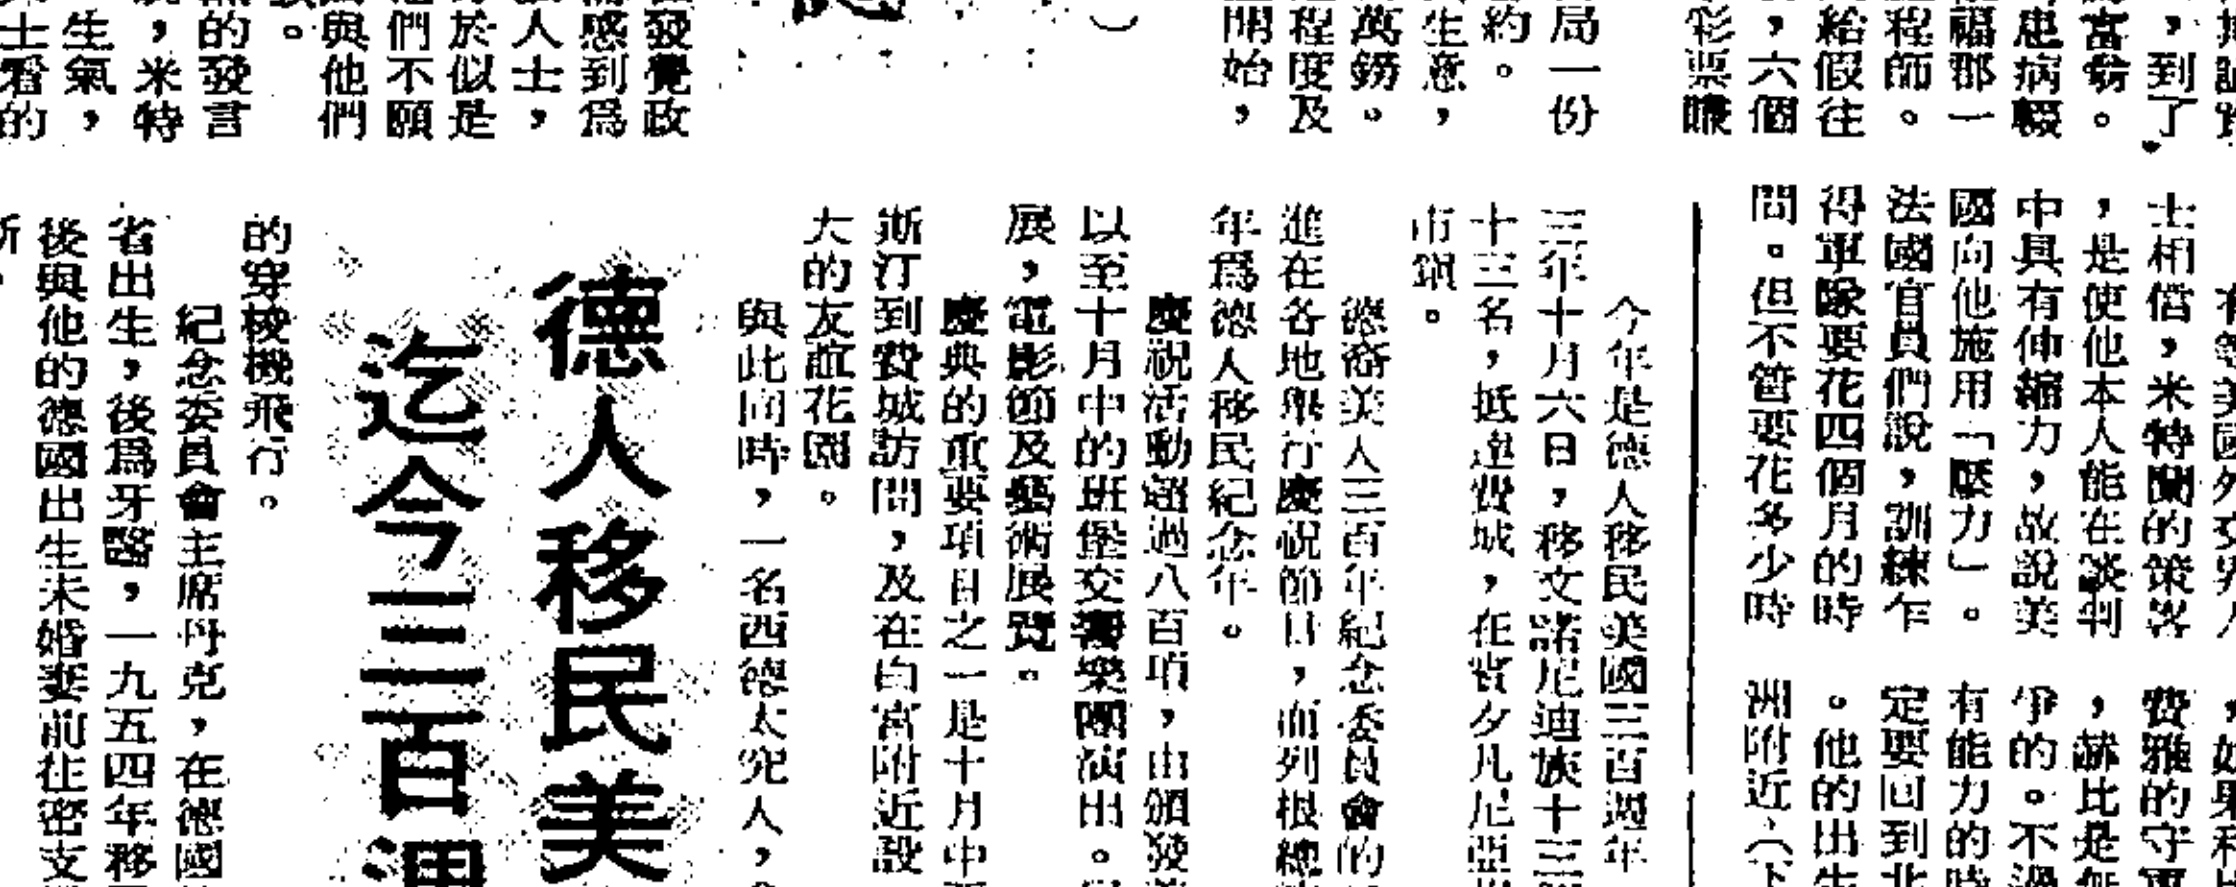 ，到了
富翁。
患病輟
福郡一
程師。
給假往
，六個
彩票賺
局一份
約。
生意，
萬鎊。
程度及
開始，
發覺政
感到為
人士，
於似是
們不願
與他們
。
的發言
，米特
生氣，
士看的
士相信，米特蘭的策畧
，是使他本人能在談判
中具有伸縮力，故說美
國向他施用「壓力」。
法國官員們說，訓練乍
得軍隊要花四個月的時
間。但不管要花多少時
費雅的守軍
，赫比是
爭的。不過
有能力的時
定要回到北
。他的出生
洲附近（下
今年是德人移民美國三百週年
三年十月六日，移文諾尼迪族十三
十三名，抵達費城，在賓夕凡尼亞
市鎮。
德裔美人三百年紀念委員會的
進在各地舉行慶祝節目，而列根總
年爲德人移民紀念年。
慶祝活動超過八百項，由頒發
以至十月中的班堡交響樂團演出。
展，電影節及藝術展覽。
慶典的重要項目之一是十月中
斯汀到費城訪問，及在白宮附近設
大的友誼花園。
與此同時，一名西德太空人，
德人移民美
迄今三百週
的穿梭機飛行。
紀念委員會主席丹克，在德國
省出生，後爲牙醫，一九五四年移
後與他的德國出生未婚妻前往密支